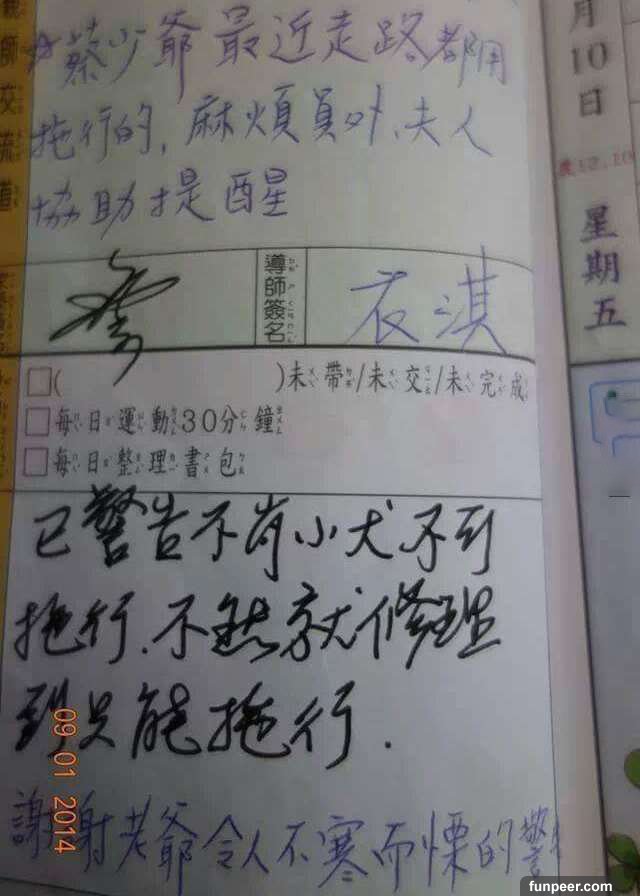 蔡少爺最近走路都用
拖行的,麻煩員外、夫人
協助提醒
導師簽名
衣淇
□( )未帶/未交/未完成
□每日運動30分鐘
□每日整理書包
已警告不肖小犬不可
拖行.不然就修理
到只能拖行.
謝謝老爺令人不寒而慄的警
師交流道
月10日
星期五
09 01 2014
funpeer.com